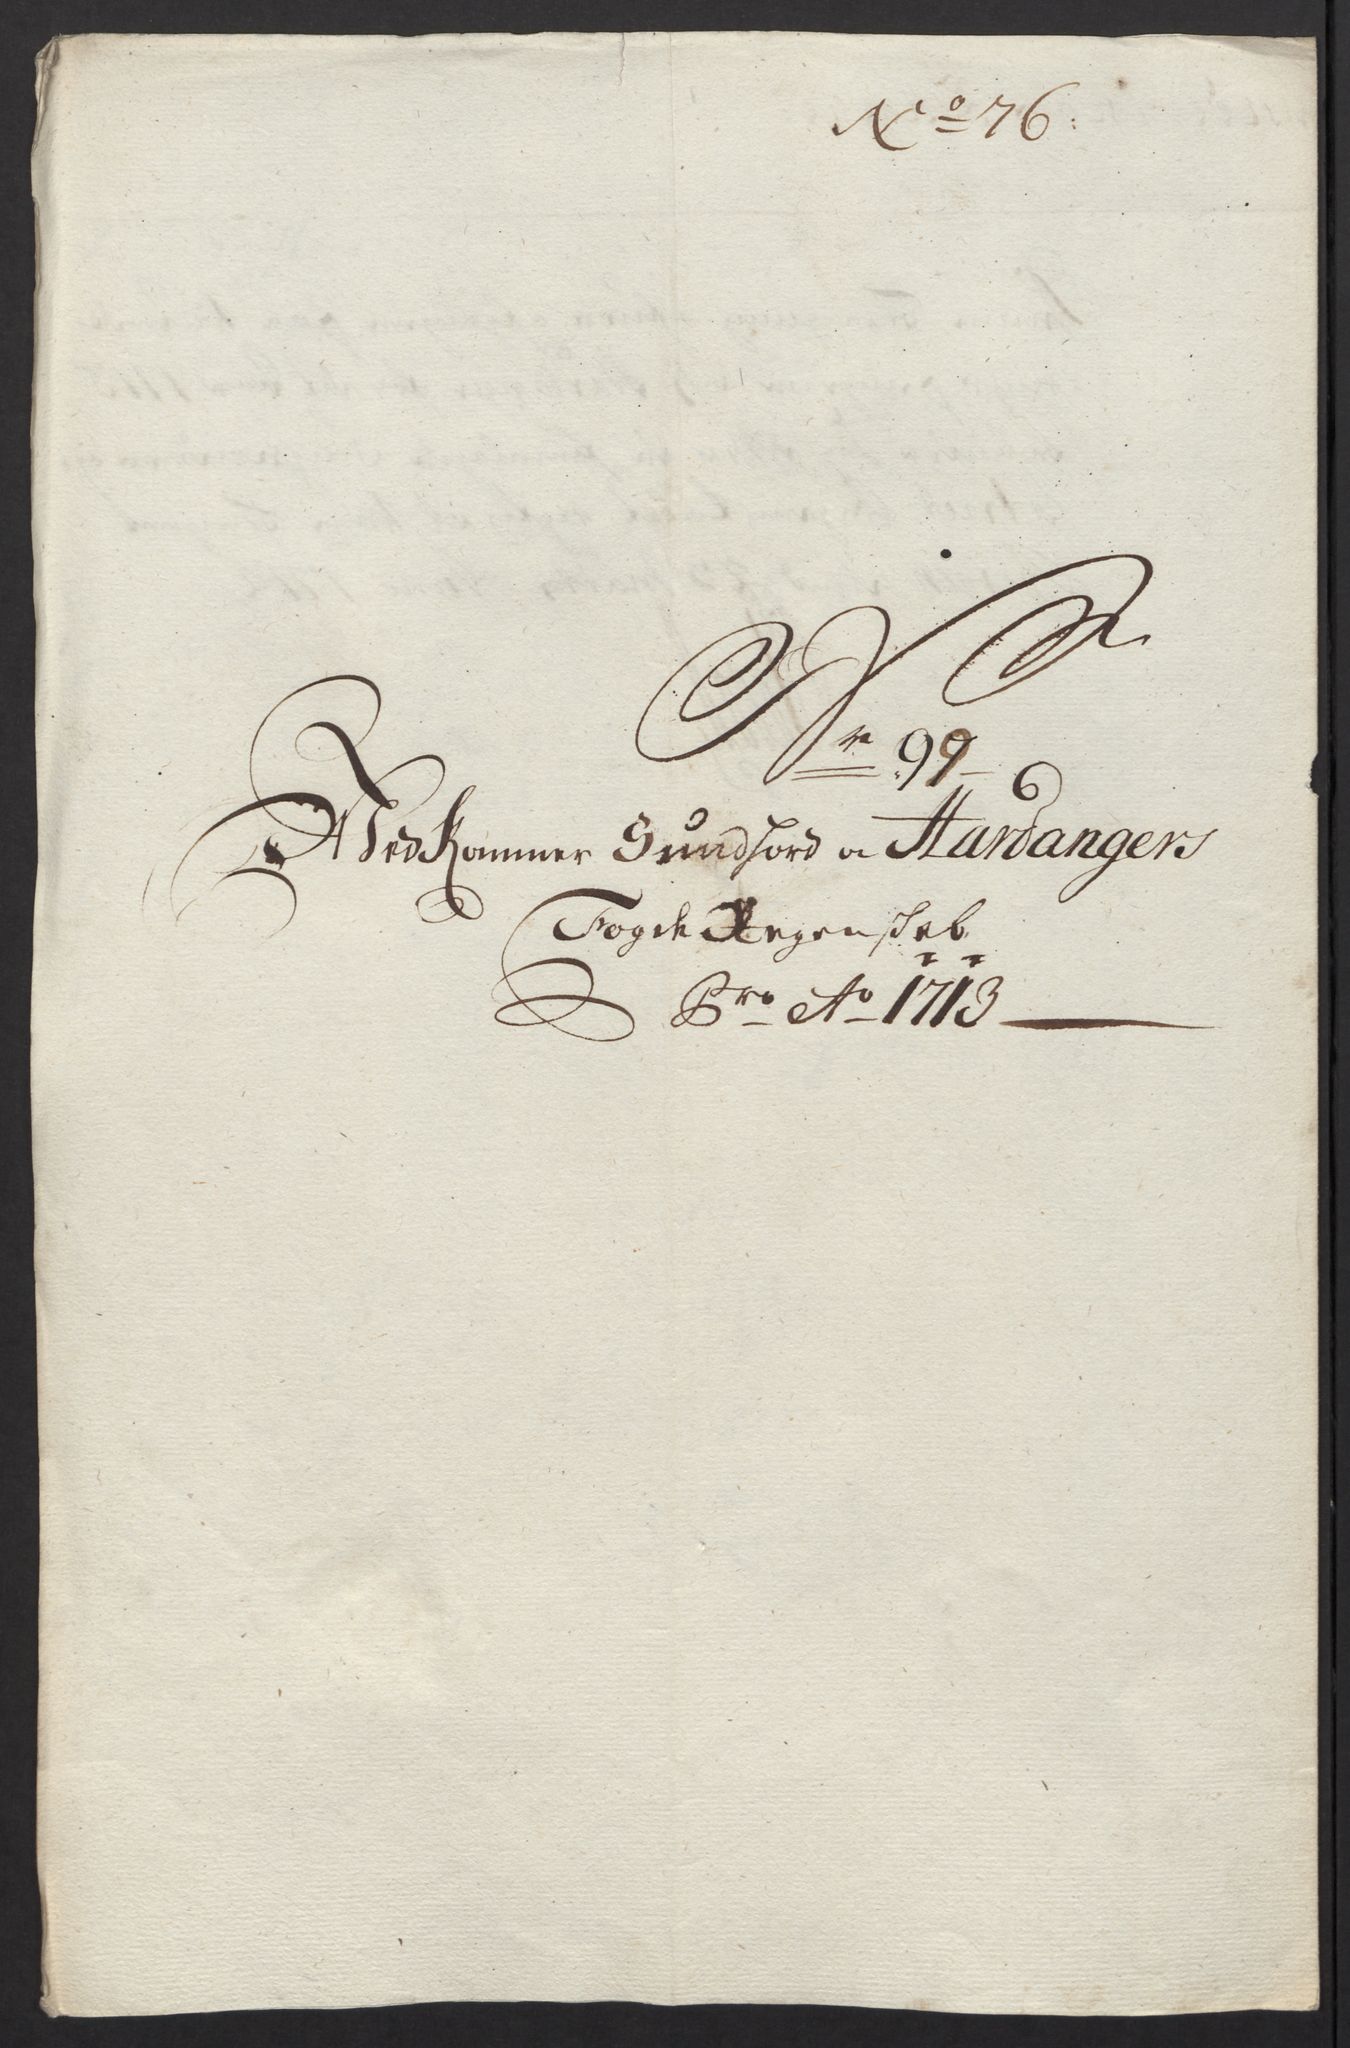 No 76:
Nr 99
Vedkommer Sundhord oc Hardangers
Fogde Regenskab
Pro Ao 1713